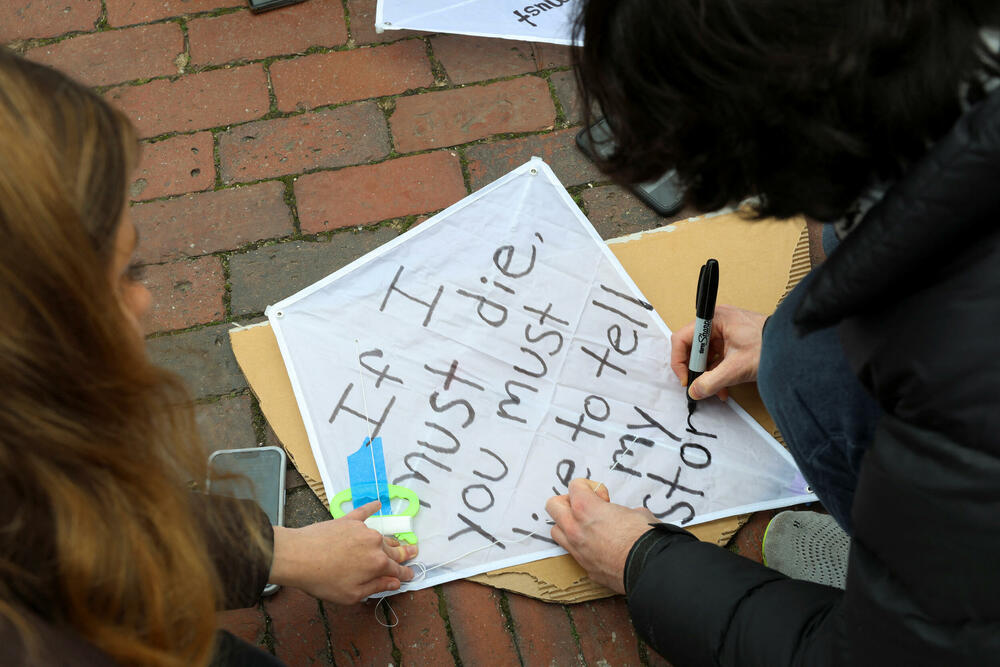 must
If I
must die,
you must
live to tell
my
stor